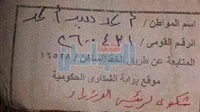 اسم المواطن / محمد سيد محمد
الرقم القومى / ٢٦٠٠٤٢١
المتابعة عن طريق الخط الساخن / ١٦٥٢٨
موقع بوابة الشكاوى الحكومية
شكوى لرئيس الوزراء